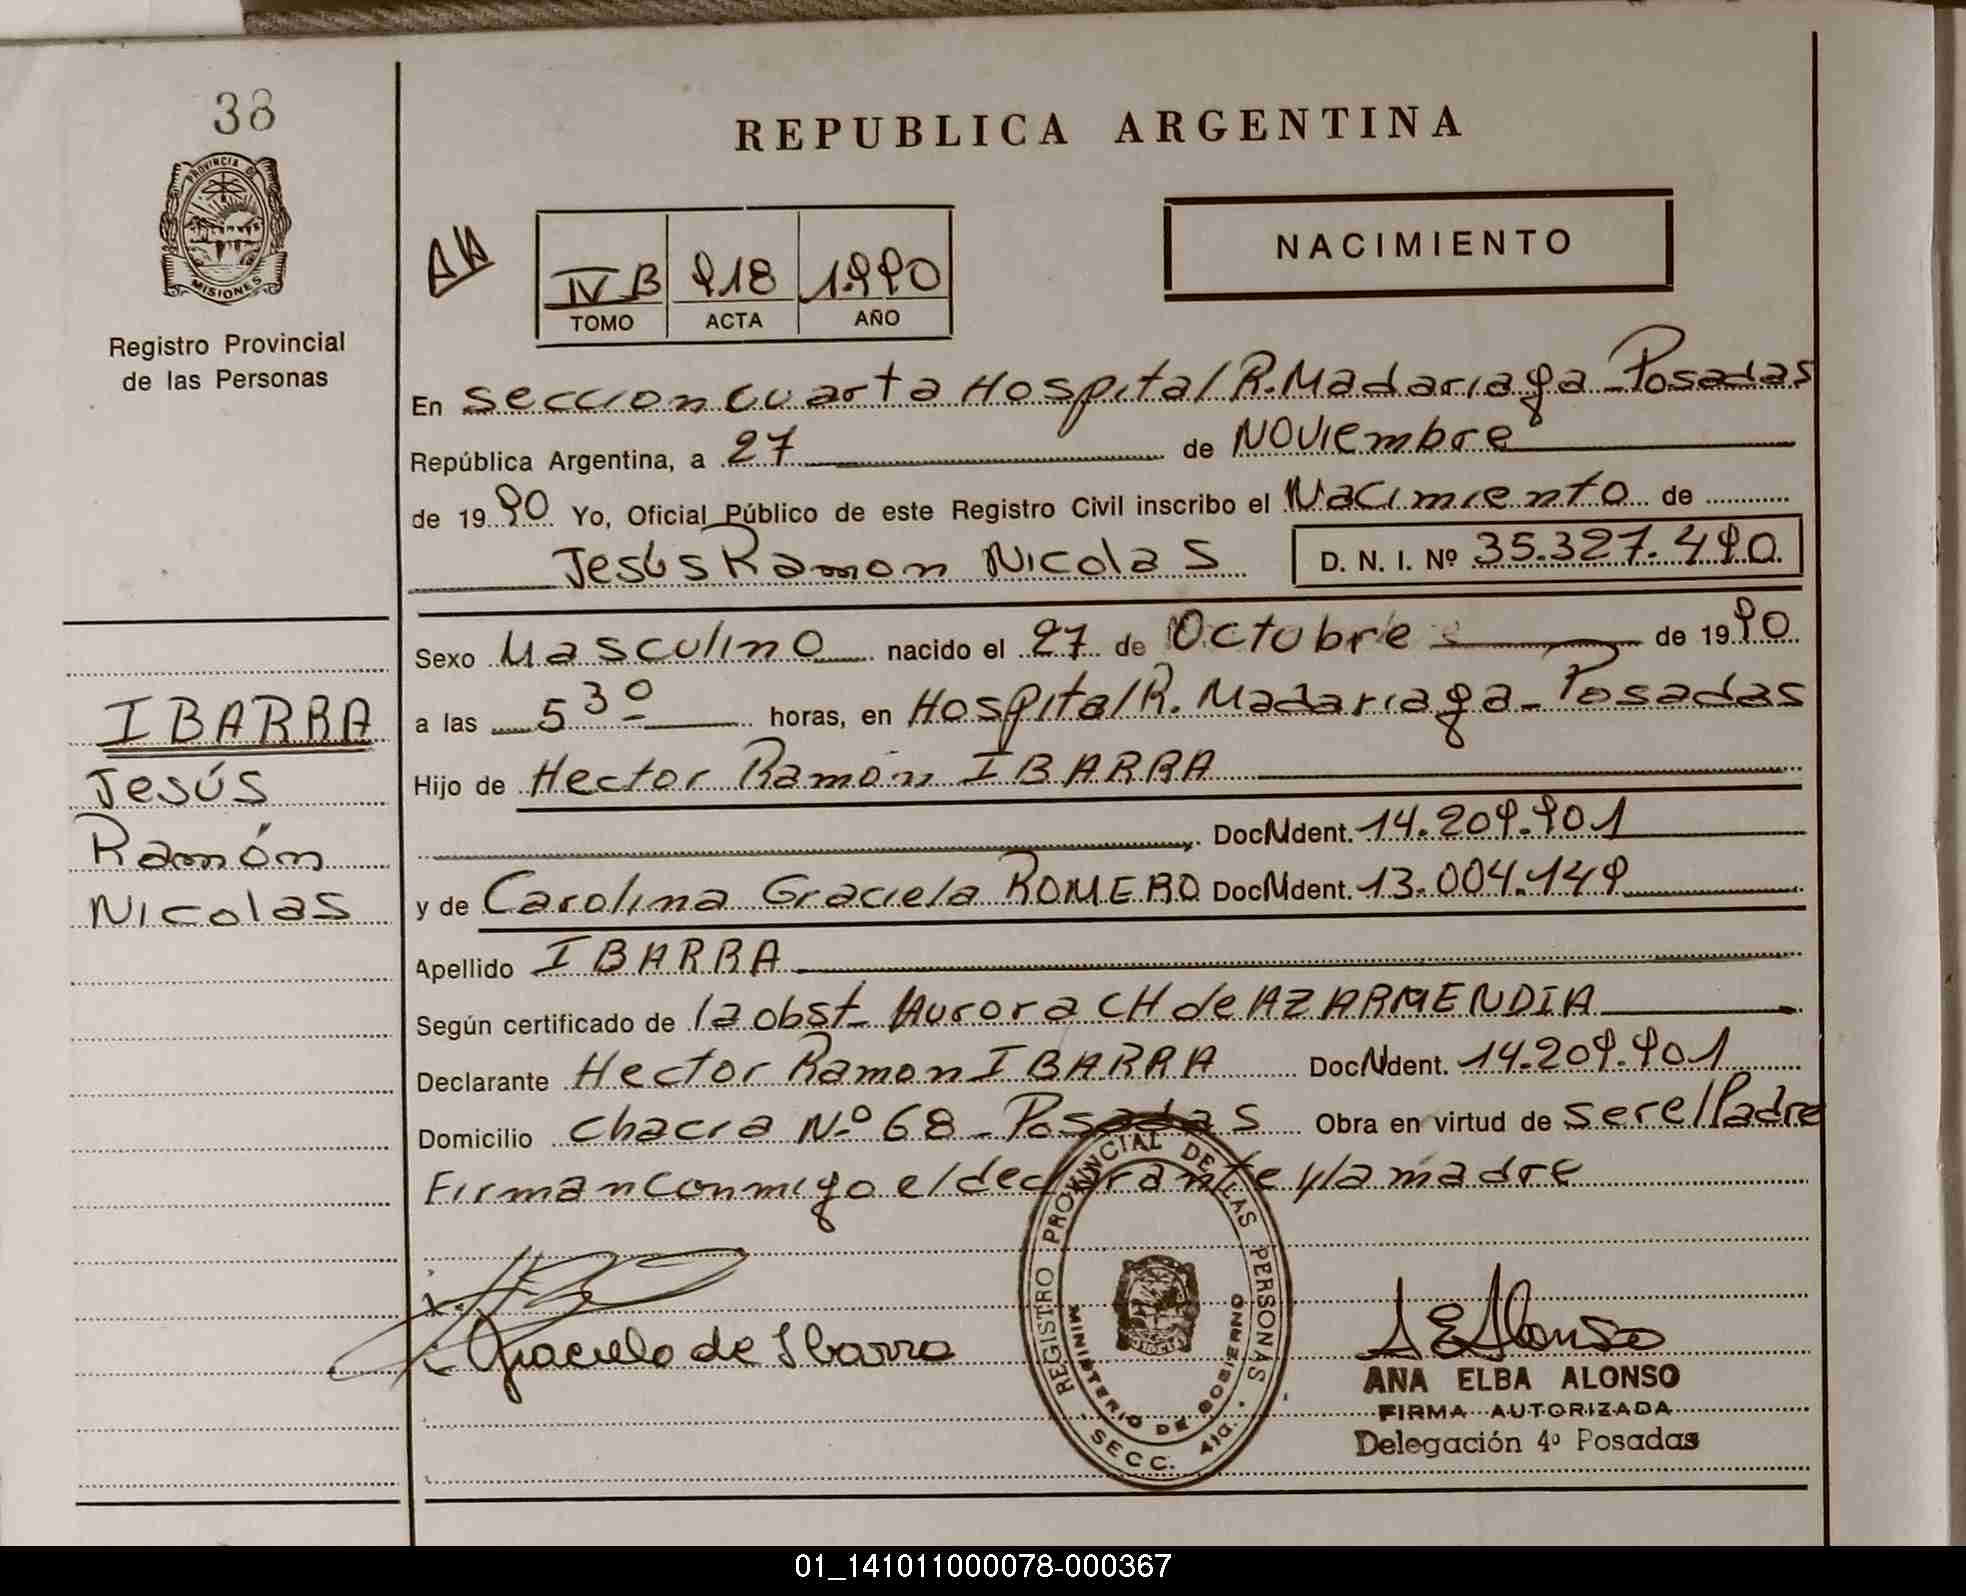 38
PROVINCIA DE
MISIONES
Registro Provincial
de las Personas
REPUBLICA ARGENTINA
IV B 918 1.990
TOMO ACTA AÑO
NACIMIENTO
En seccion cuarta Hospital R. Madariaga - Posadas
República Argentina, a 27 de Noviembre
de 1990 Yo, Oficial Público de este Registro Civil inscribo el Nacimiento de
Jesús Ramon Nicolas D. N. I. Nº 35.327.490
Sexo Masculino nacido el 27 de Octubre de 1990
a las 5 30 horas, en Hospital R. Madariaga - Posadas
Hijo de Hector Ramón IBARRA
Doc N Ident. 14.209.901
y de Carolina Graciela ROMERO Doc N Ident. 13.004.149
Apellido IBARRA
Según certificado de la obst. Aurora CH de AZARMENDIA
Declarante Hector Ramon IBARRA Doc N Ident. 14.209.901
Domicilio chacra Nº 68 - Posadas Obra en virtud de ser el Padre
Firman conmigo el declarante y la madre
IBARRA
Jesús
Ramón
Nicolas
Graciela de Ibarra
REGISTRO PROVINCIAL DE LAS PERSONAS
MINISTERIO DE GOBIERNO
SECC. 4ta.
A E Alonso
ANA ELBA ALONSO
FIRMA AUTORIZADA
Delegación 4º Posadas
01_141011000078-000367